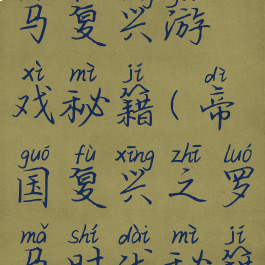 马复兴游
xì mì jí dì
戏秘籍(帝
guó fù xīng zhī luó
国复兴之罗
mǎ shí dài mì jí
马时代秘籍